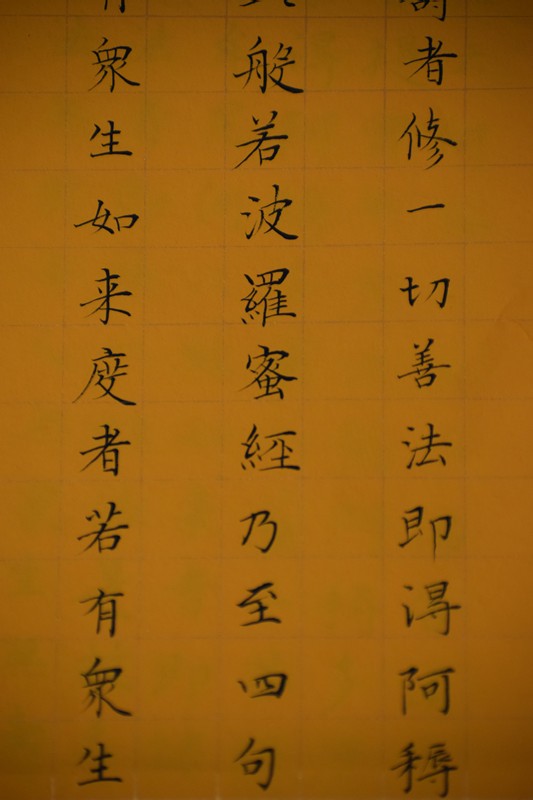 者修一切善法即得阿耨
般若波羅蜜經乃至四句
有眾生如来度者若有眾生